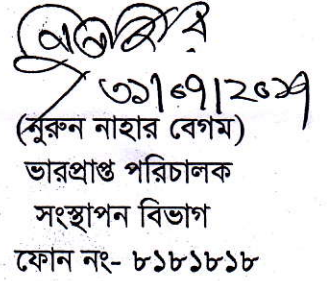 ৩১/০৭/২০১৭
(নুরুন নাহার বেগম)
ভারপ্রাপ্ত পরিচালক
সংস্থাপন বিভাগ
ফোন নং- ৮১৮১৮১৮